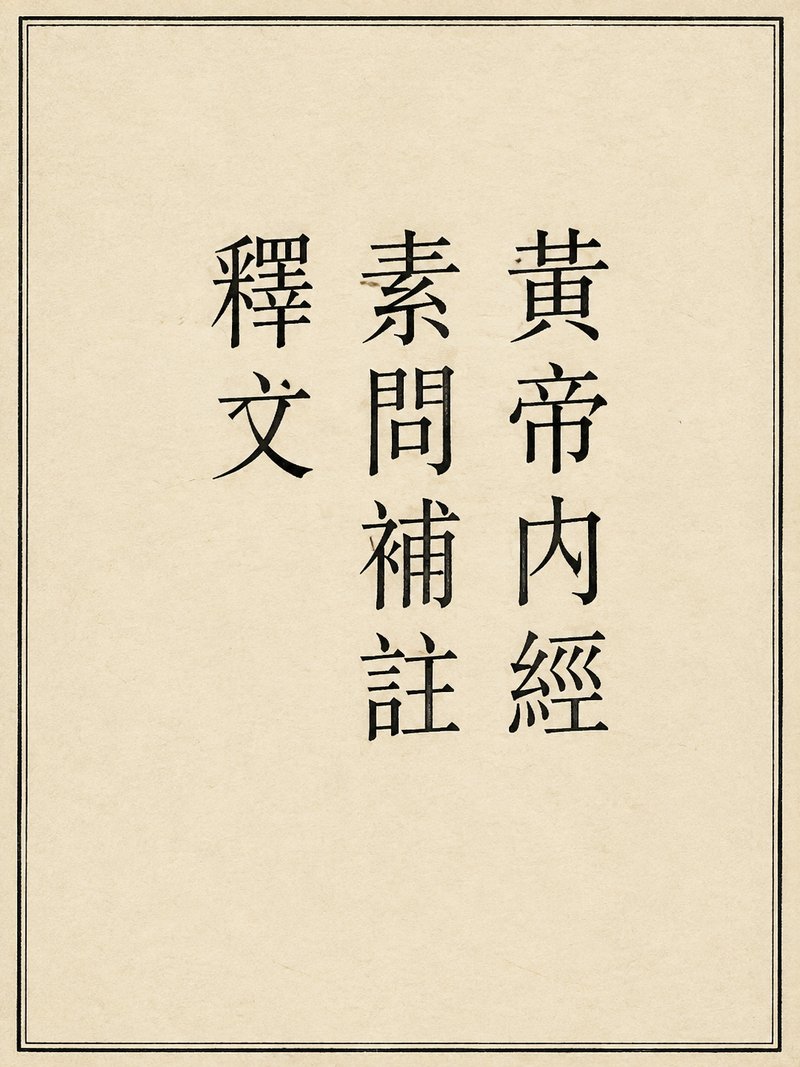 黃帝內經
素問補註
釋文